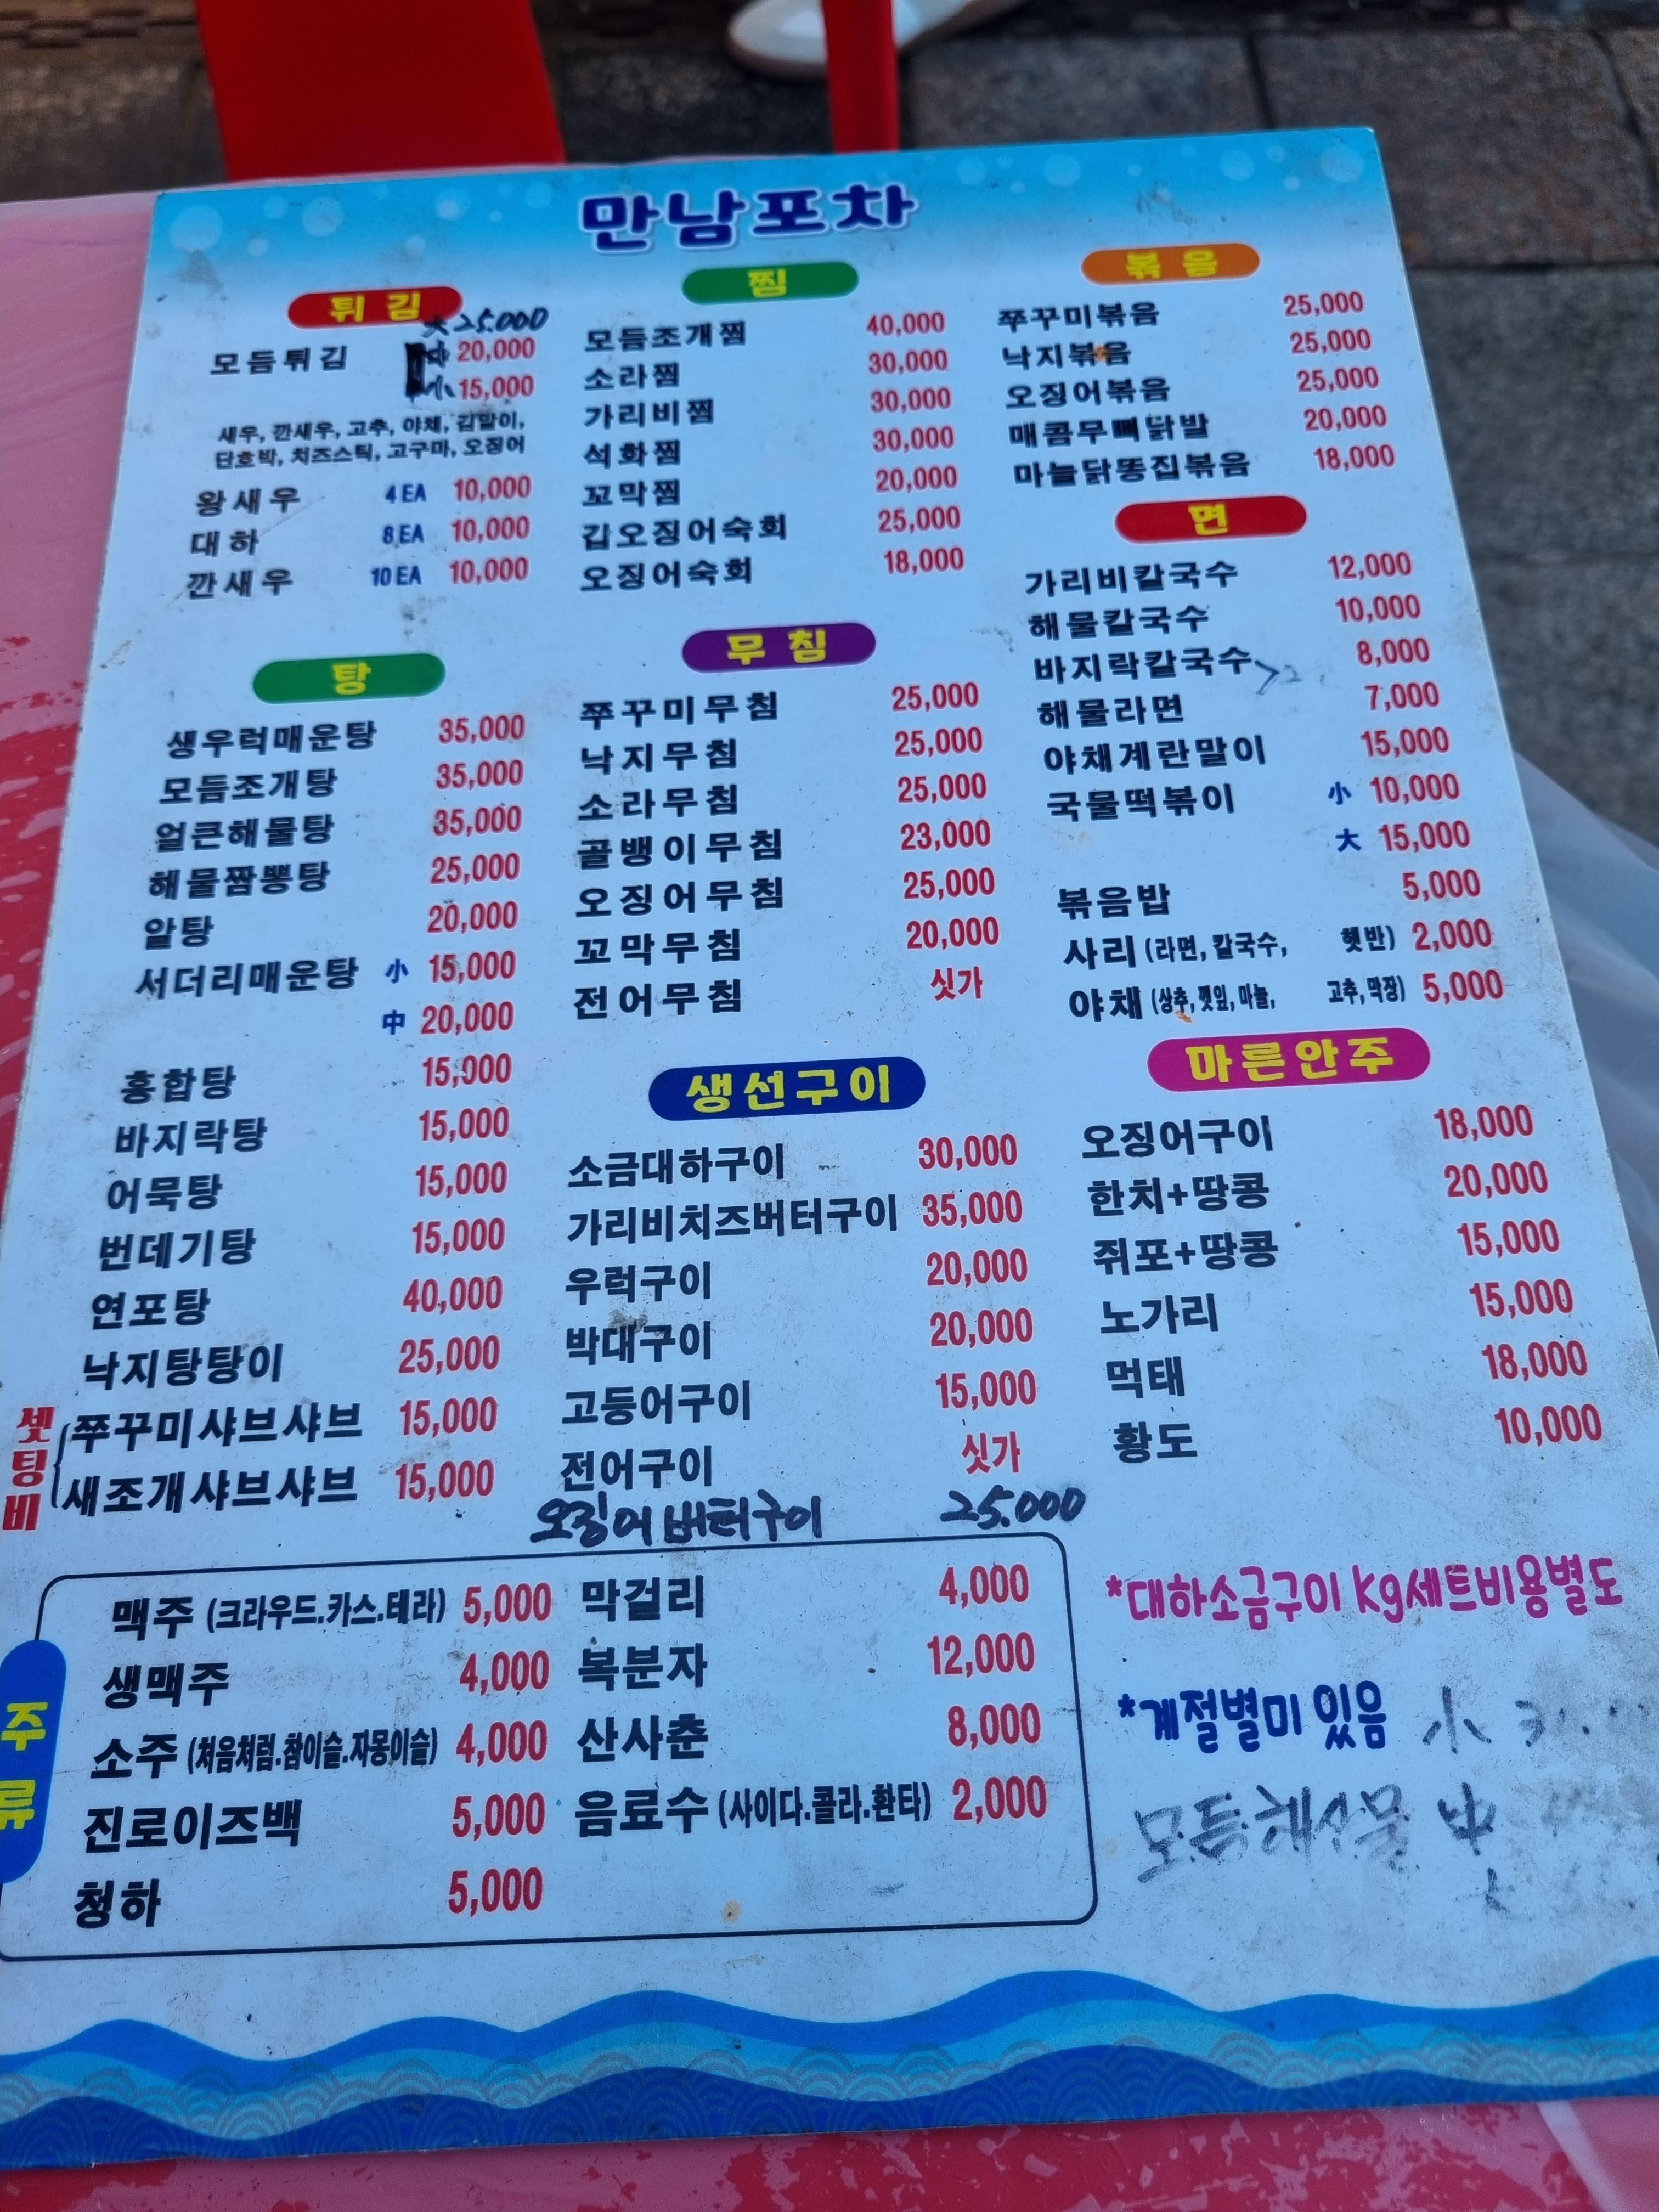 만남포차
튀김
大 25.000
모듬튀김 中 20,000
小 15,000
새우, 깐새우, 고추, 야채, 김말이,
단호박, 치즈스틱, 고구마, 오징어
왕새우 4EA 10,000
대하 8EA 10,000
깐새우 10EA 10,000
탕
생우럭매운탕 35,000
모듬조개탕 35,000
얼큰해물탕 35,000
해물짬뽕탕 25,000
알탕 20,000
서더리매운탕 小 15,000
中 20,000
홍합탕 15,000
바지락탕 15,000
어묵탕 15,000
번데기탕 15,000
연포탕 40,000
낙지탕탕이 25,000
셋팅비
쭈꾸미샤브샤브 15,000
새조개샤브샤브 15,000
찜
모듬조개찜 40,000
소라찜 30,000
가리비찜 30,000
석화찜 30,000
꼬막찜 20,000
갑오징어숙회 25,000
오징어숙회 18,000
무침
쭈꾸미무침 25,000
낙지무침 25,000
소라무침 25,000
골뱅이무침 23,000
오징어무침 25,000
꼬막무침 20,000
전어무침 싯가
생선구이
소금대하구이 30,000
가리비치즈버터구이 35,000
우럭구이 20,000
박대구이 20,000
고등어구이 15,000
전어구이 싯가
오징어버터구이 25.000
볶음
쭈꾸미볶음 25,000
낙지볶음 25,000
오징어볶음 25,000
매콤무뼈닭발 20,000
마늘닭똥집볶음 18,000
면
가리비칼국수 12,000
해물칼국수 10,000
바지락칼국수 8,000
해물라면 7,000
야채계란말이 15,000
국물떡볶이 小 10,000
大 15,000
볶음밥 5,000
사리 (라면, 칼국수, 햇반) 2,000
야채 (상추, 깻잎, 마늘, 고추, 막장) 5,000
마른안주
오징어구이 18,000
한치+땅콩 20,000
쥐포+땅콩 15,000
노가리 15,000
먹태 18,000
황도 10,000
주류
맥주 (크라우드.카스.테라) 5,000
생맥주 4,000
소주 (처음처럼.참이슬.자몽이슬) 4,000
진로이즈백 5,000
청하 5,000
막걸리 4,000
복분자 12,000
산사춘 8,000
음료수 (사이다.콜라.환타) 2,000
*대하소금구이 kg세트비용별도
*계절별미 있음 小
中